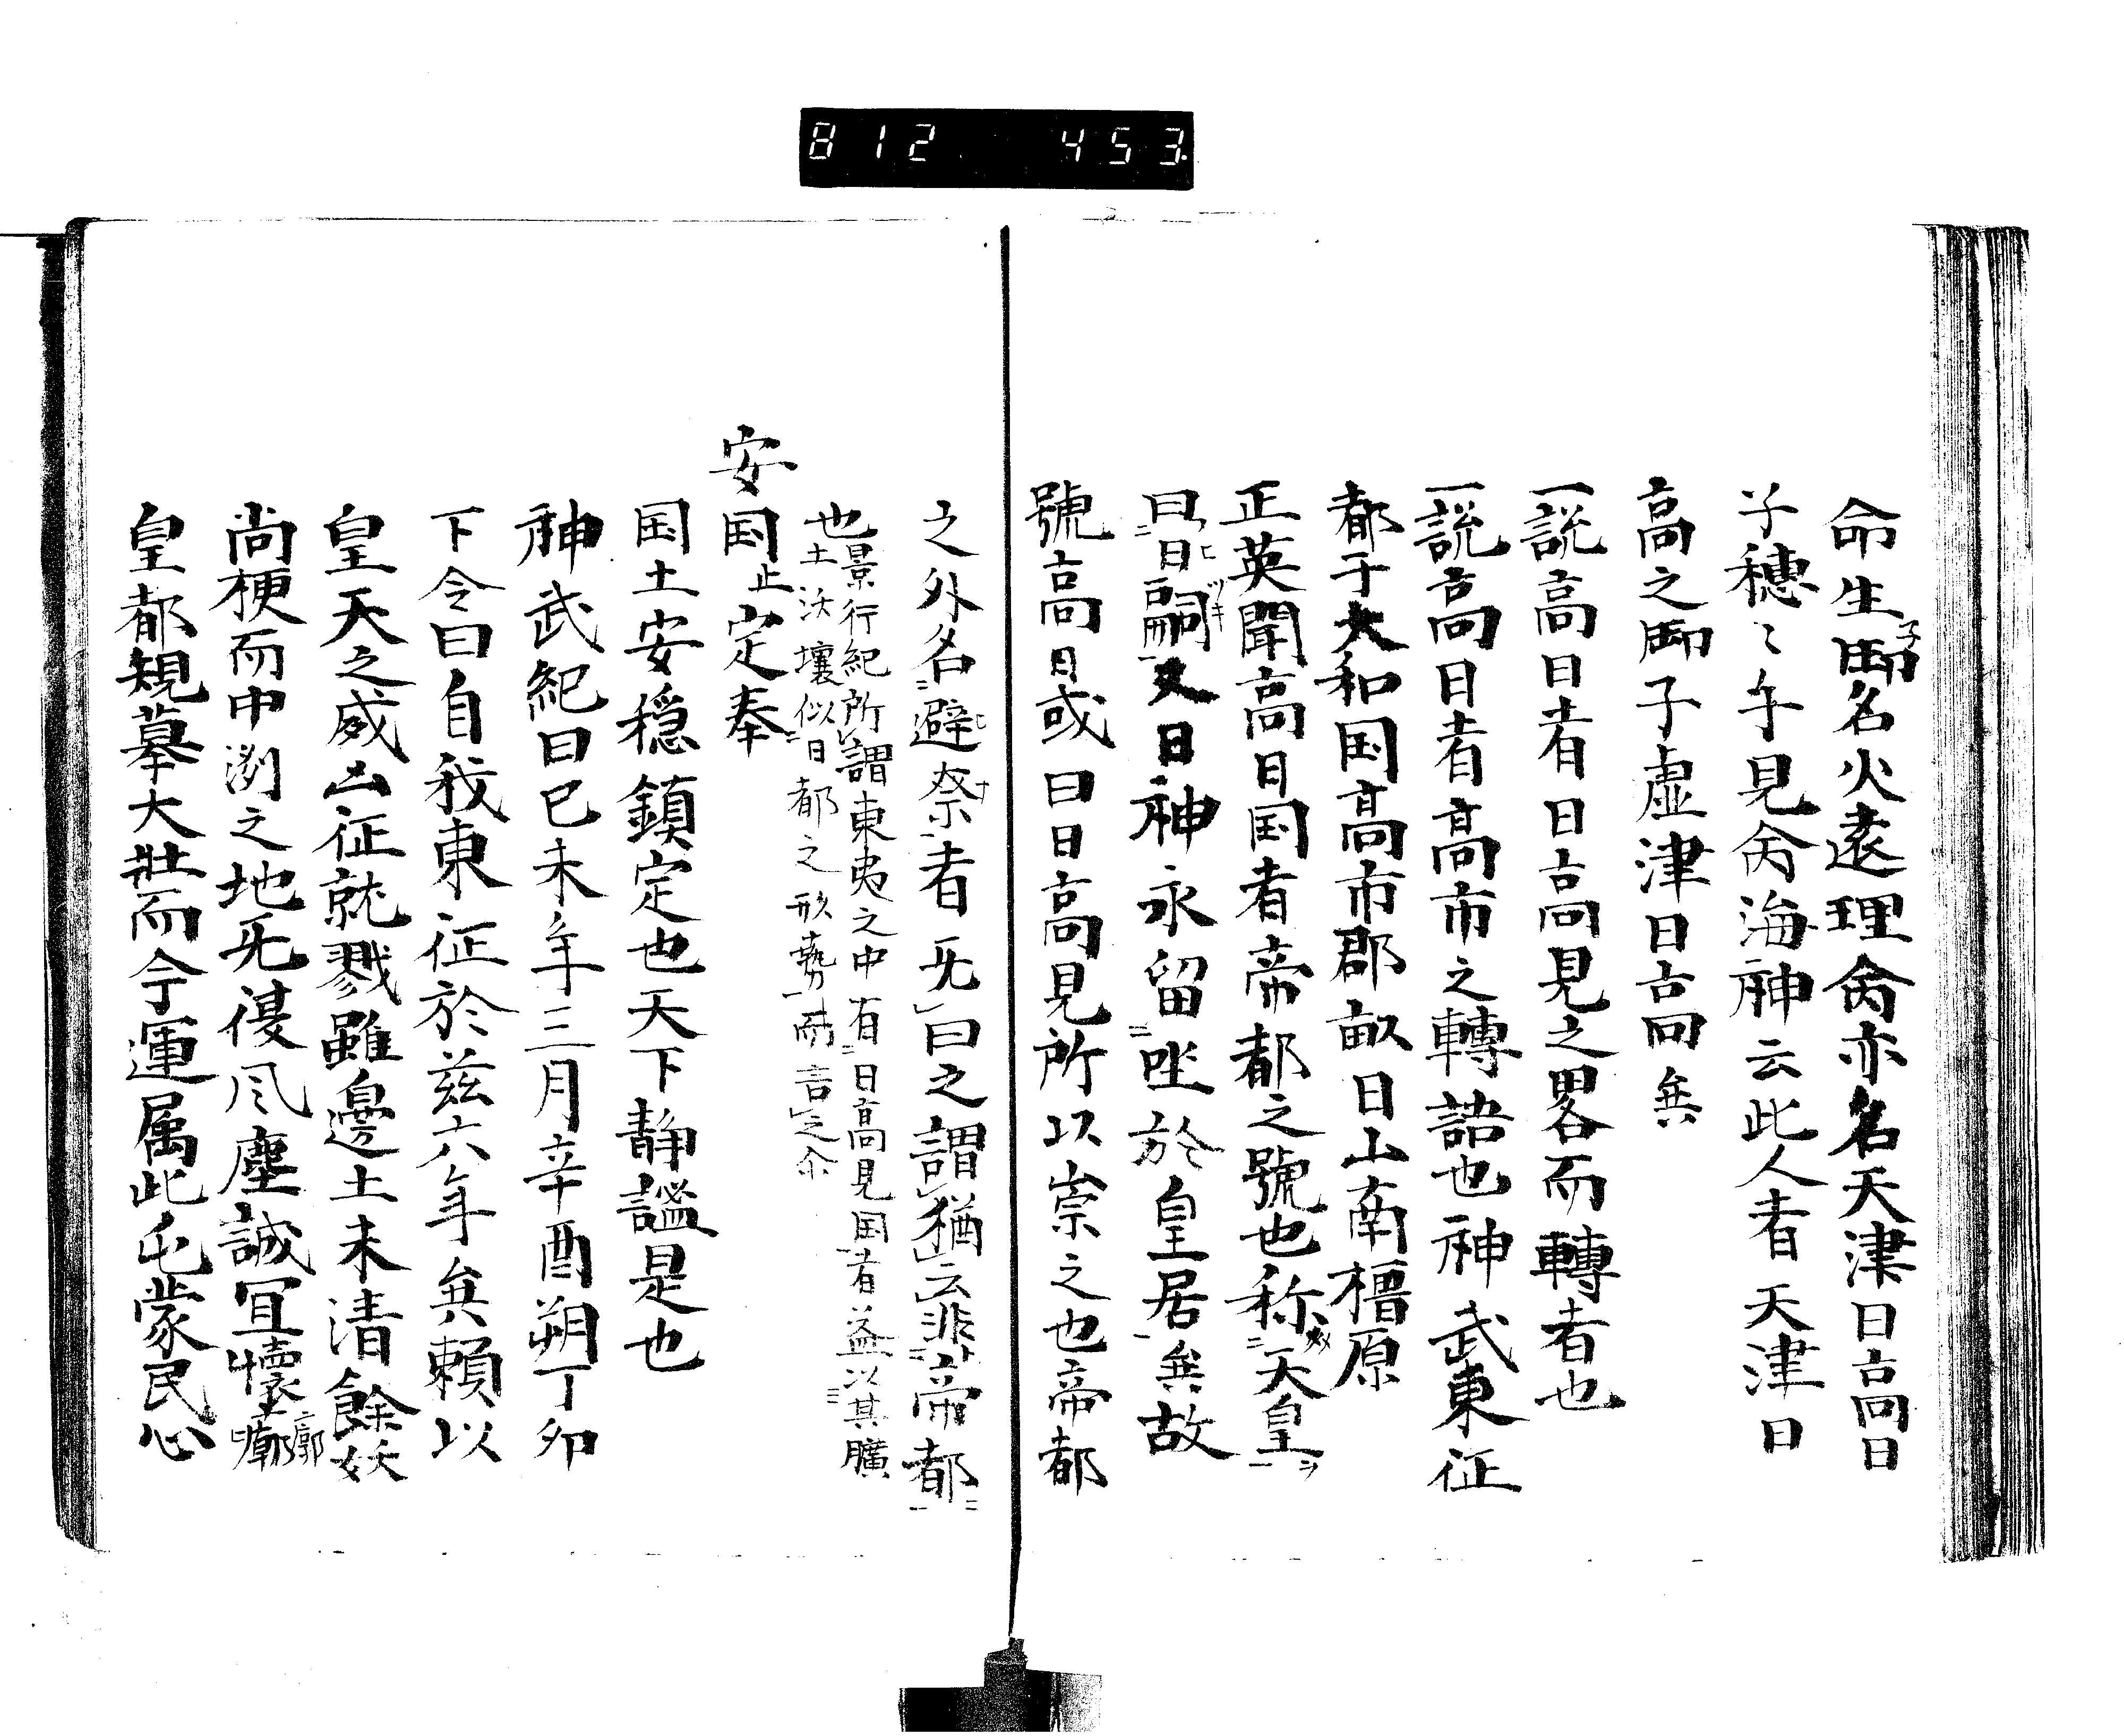 812 453
命生御子名火遠理命亦名天津日高日
子穂〻手見命海神云此人者天津日
高之御子虚津日高矣
一説高日者日高見之畧而轉者也
一説高日者高市之轉語也神武東征
都于大和国高市郡畝日山南橿原
正英聞高日国者帝都之號也称天皇ヲ
曰日嗣ヒツキ又日神永留坐於皇居矣故
號高日或曰日高見所以崇之也帝都
之外名避ヒ祭ナ者旡曰之謂猶云非帝都
也景行紀所謂東夷之中有日高見国者益以其曠
土沃壤似日都之形勢而言之尒
安国止定奉
国土安穏鎮定也天下静謐是也
神武紀曰己未年三月辛酉朔丁卯
下令曰自我東征於茲六年矣頼以
皇天之威凶征就戮雖邊土未清餘妖
尚梗而中洲之地旡復风塵誠冝恢廓
皇都規摹大壯而今運属此屯蒙民心